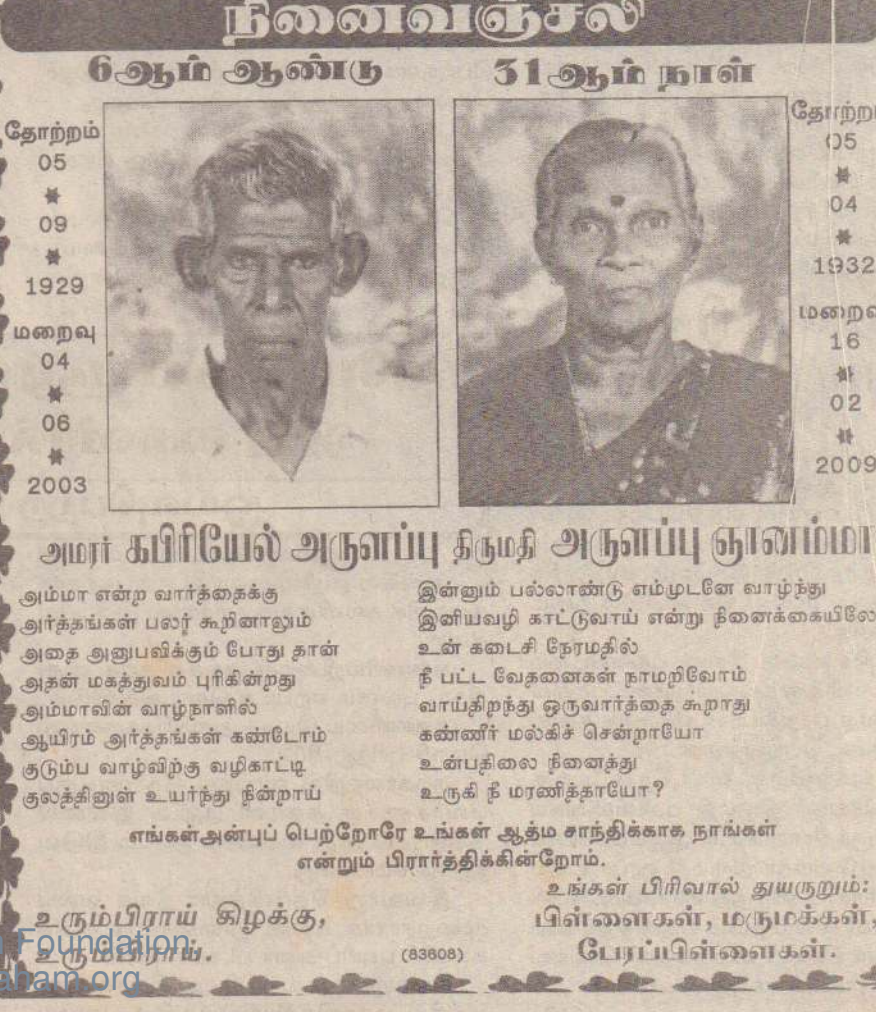 நினைவஞ்சலி
6ஆம் ஆண்டு
31ஆம் நாள்
தோற்றம்
05
09
1929
மறைவு
04
06
2003
05
04
1932
16
02
2009
அமரர் கபிரியேல் அருளப்பு
திருமதி அருளப்பு ஞானம்மா
அம்மா என்ற வார்த்தைக்கு
அர்த்தங்கள் பலர் கூறினாலும்
அதை அனுபவிக்கும் போது தான்
அதன் மகத்துவம் புரிகின்றது
அம்மாவின் வாழ்நாளில்
ஆயிரம் அர்த்தங்கள் கண்டோம்
குடும்ப வாழ்விற்கு வழிகாட்டி
குலத்தினுள் உயர்ந்து நின்றாய்
இன்னும் பல்லாண்டு எம்முடனே வாழ்ந்து
இனியவழி காட்டுவாய் என்று நினைக்கையிலே
உன் கடைசி நேரமதில்
நீ பட்ட வேதனைகள் நாமறிவோம்
வாய்திறந்து ஒருவார்த்தை கூறாது
கண்ணீர் மல்கிச் சென்றாயோ
உன்பதிலை நினைத்து
உருகி நீ மரணித்தாயோ?
எங்கள்அன்புப் பெற்றோரே உங்கள் ஆத்ம சாந்திக்காக நாங்கள்
என்றும் பிரார்த்திக்கின்றோம்.
உங்கள் பிரிவால் துயருறும்:
பிள்ளைகள், மருமக்கள்,
பேரப்பிள்ளைகள்.
உரும்பிராய் கிழக்கு,
உரும்பிராய்.
(83608)
Foundation
aham.org